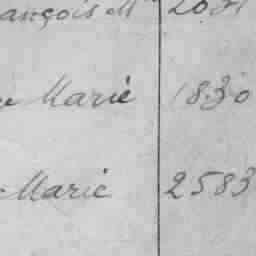 ançois M
Marie 1830
Marie 2583